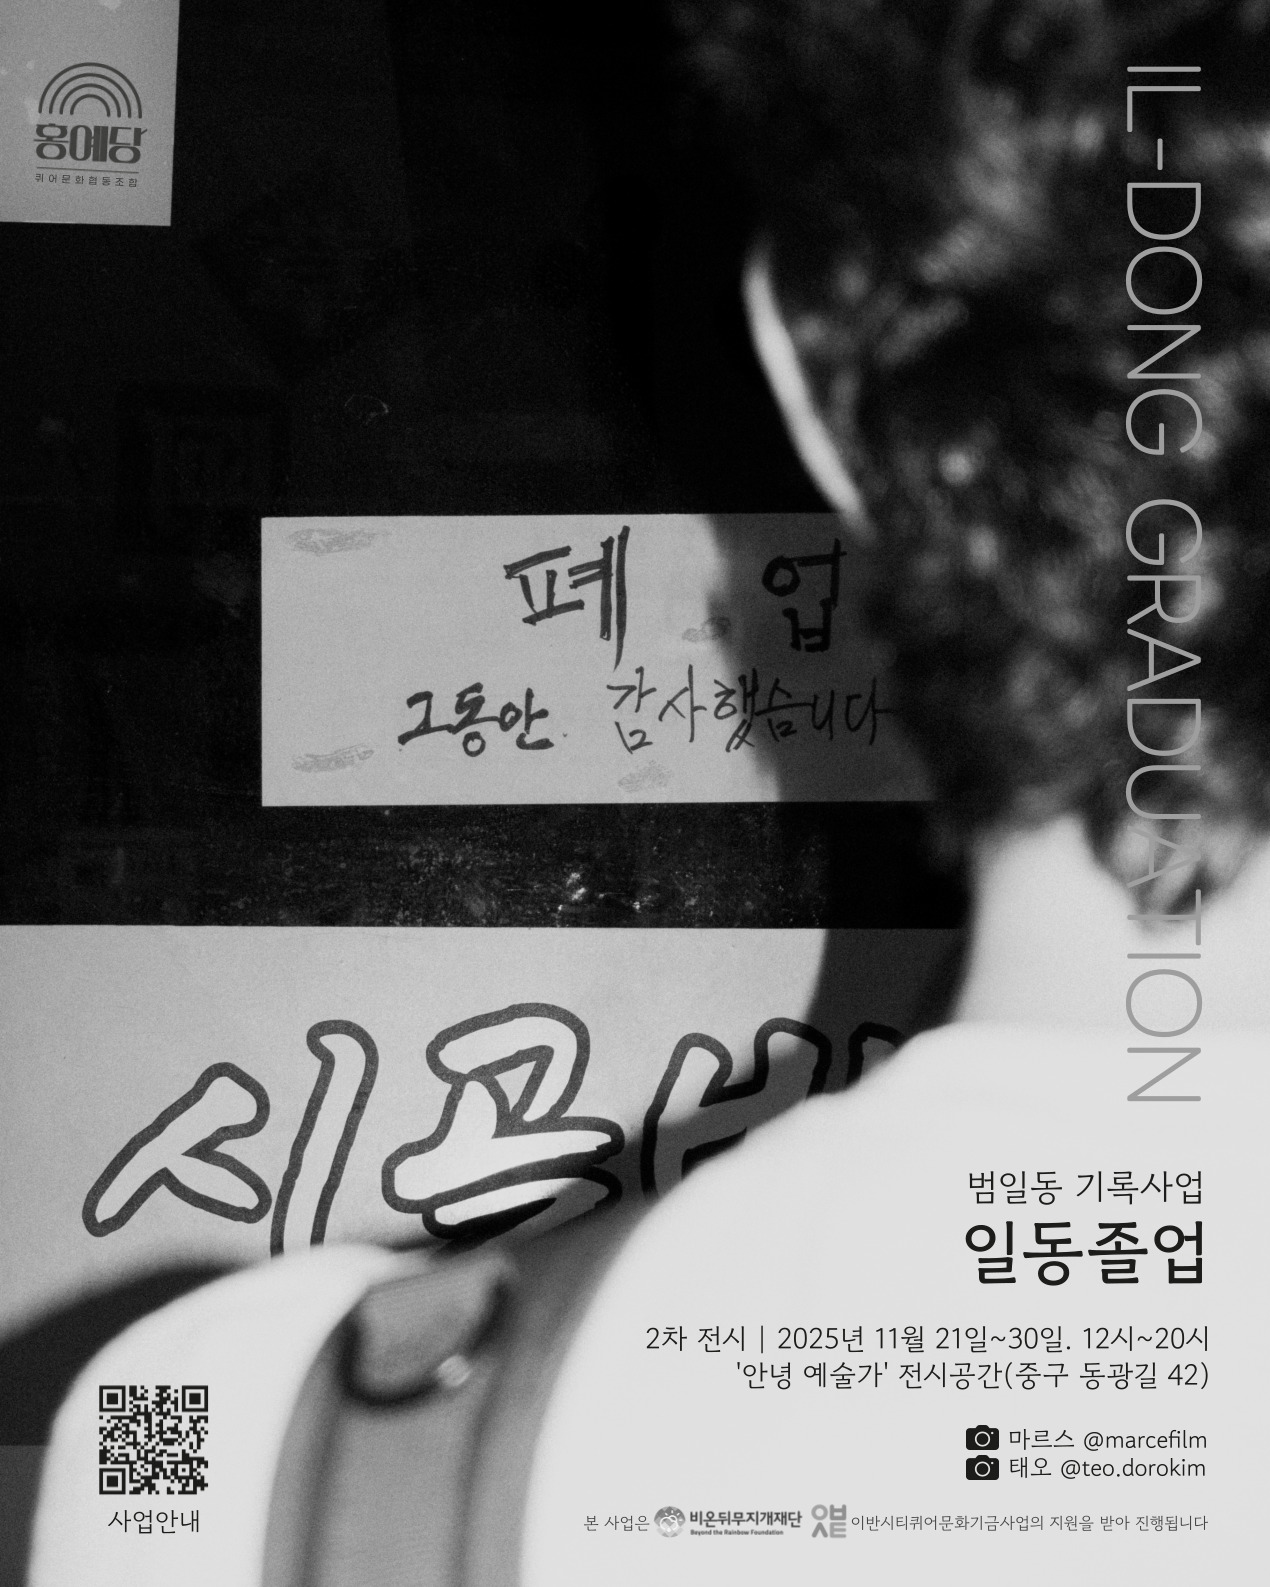 홍예당
퀴어문화협동조합
IL-DONG GRADUATION
폐 업
그동안. 감사했습니다
시골
범일동 기록사업
일동졸업
2차 전시 | 2025년 11월 21일~30일. 12시~20시
'안녕 예술가' 전시공간(중구 동광길 42)
마르스 @marcefilm
태오 @teo.dorokim
사업안내
본 사업은 비온뒤무지개재단 Beyond the Rainbow Foundation 이반시티퀴어문화기금사업의 지원을 받아 진행됩니다